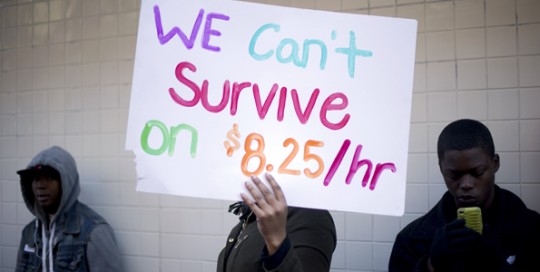 WE Can't
Survive
on $8.25/hr